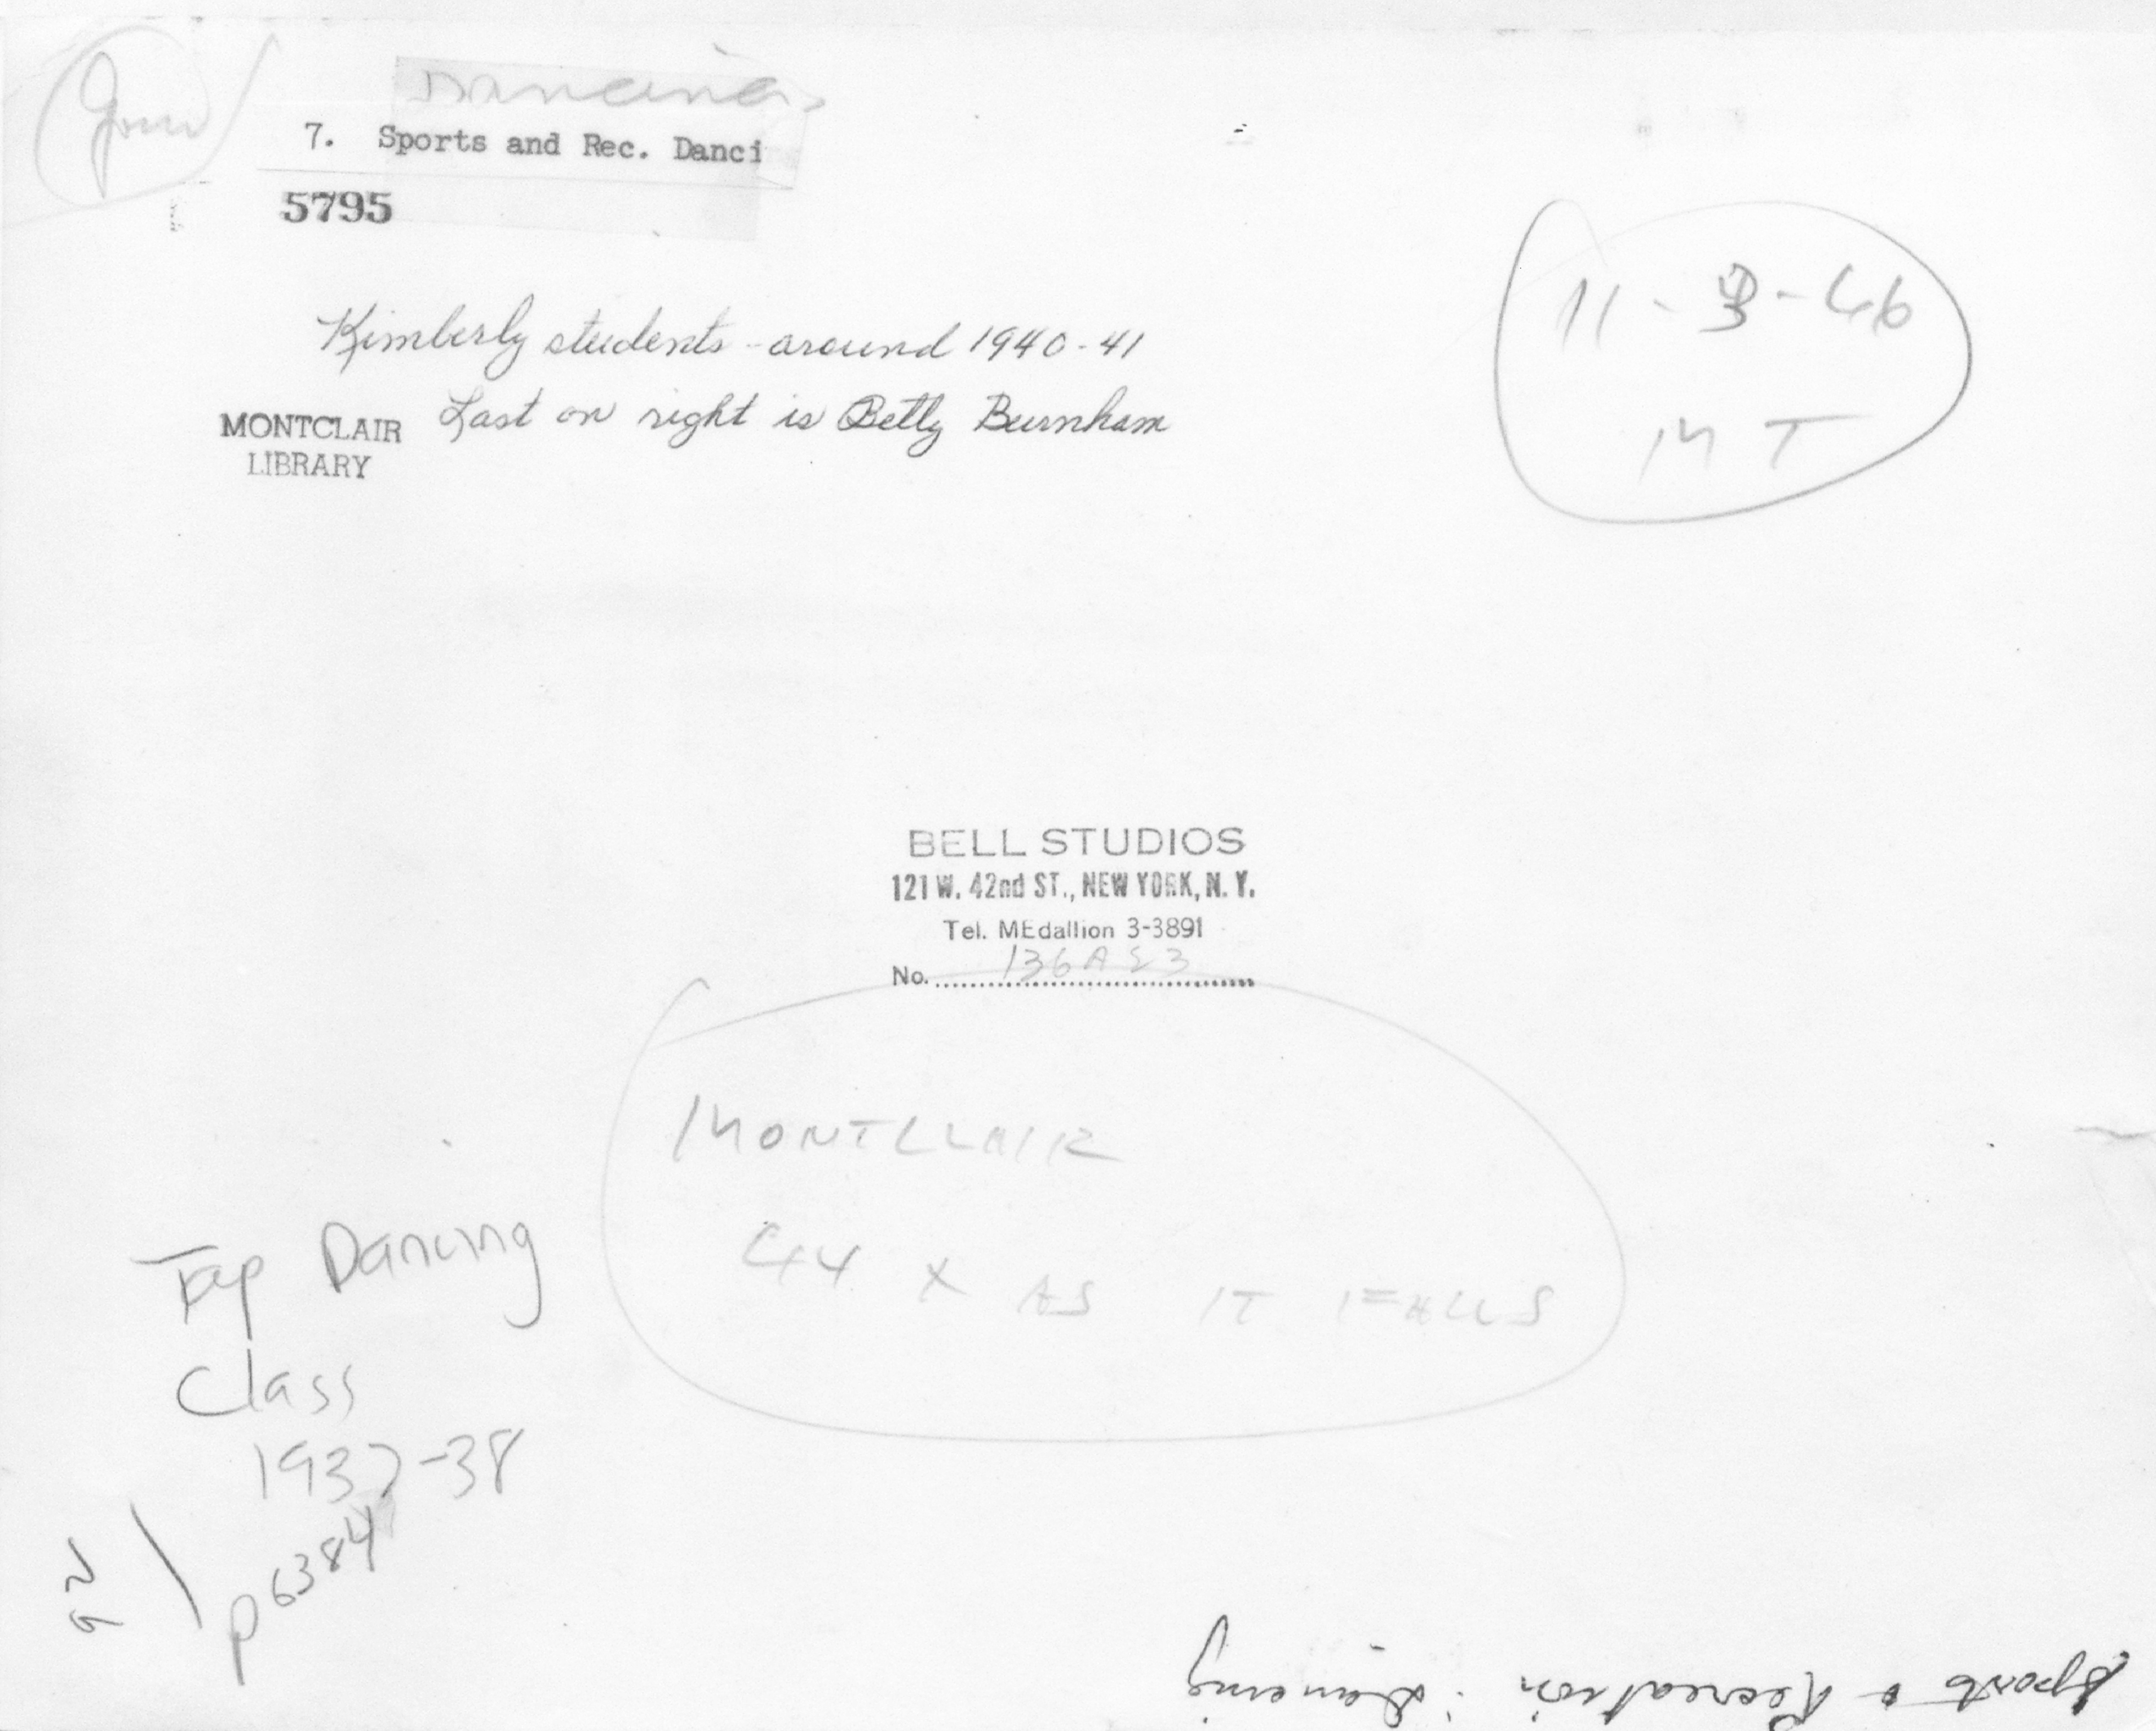 Dancing
7. Sports and Rec. Danci
5795
Kimberly students - around 1940-41
Last on right is Betty Burnham
MONTCLAIR
LIBRARY
11-3-46
MT
BELL STUDIOS
121 W. 42nd ST., NEW YORK, N. Y.
Tel. MEdallion 3-3891
No.
MONTCLAIR
44 X AS IT FALLS
Tap Dancing
Class
1937-38
p6384
Sports & Recreation: Dancing